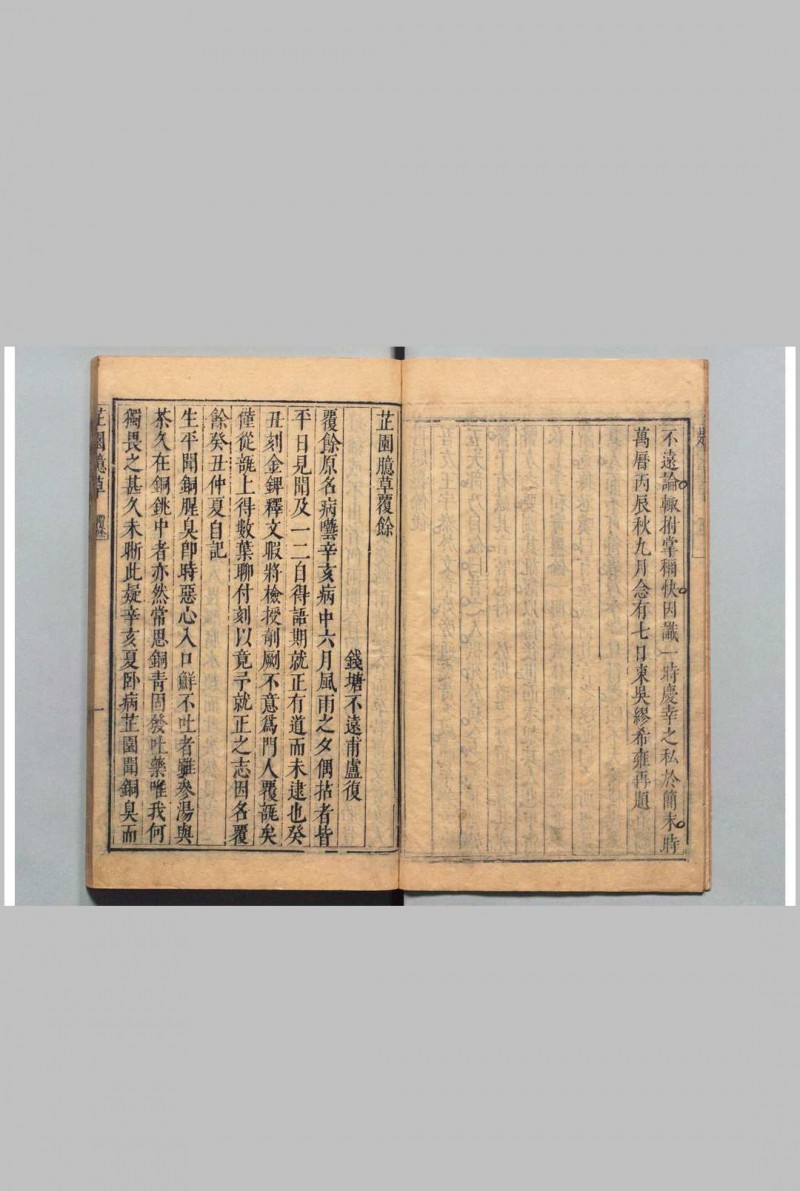 不遠論輙拊掌稱快因識一時慶幸之私於簡末時
萬曆丙辰秋九月念有七日東吳繆希雍再題
芷園臆草覆餘
錢塘不遠甫盧復
覆餘原名病囈辛亥病中六月風雨之夕偶拈者皆
平日見聞及一二自得語期就正有道而未逮也癸
丑刻金錍釋文暇將檢授剞劂不意為門人覆瓿矣
僅從瓿上得數葉聊付刻以竟予就正之志因名覆
餘癸丑仲夏自記
生平聞銅腥臭卽時惡心入口鮮不吐者雖參湯與
茶久在銅銚中者亦然常思銅青固發吐藥唯我何
獨畏之甚久未晰此疑辛亥夏卧病芷園聞銅臭而
芷園臆草
一